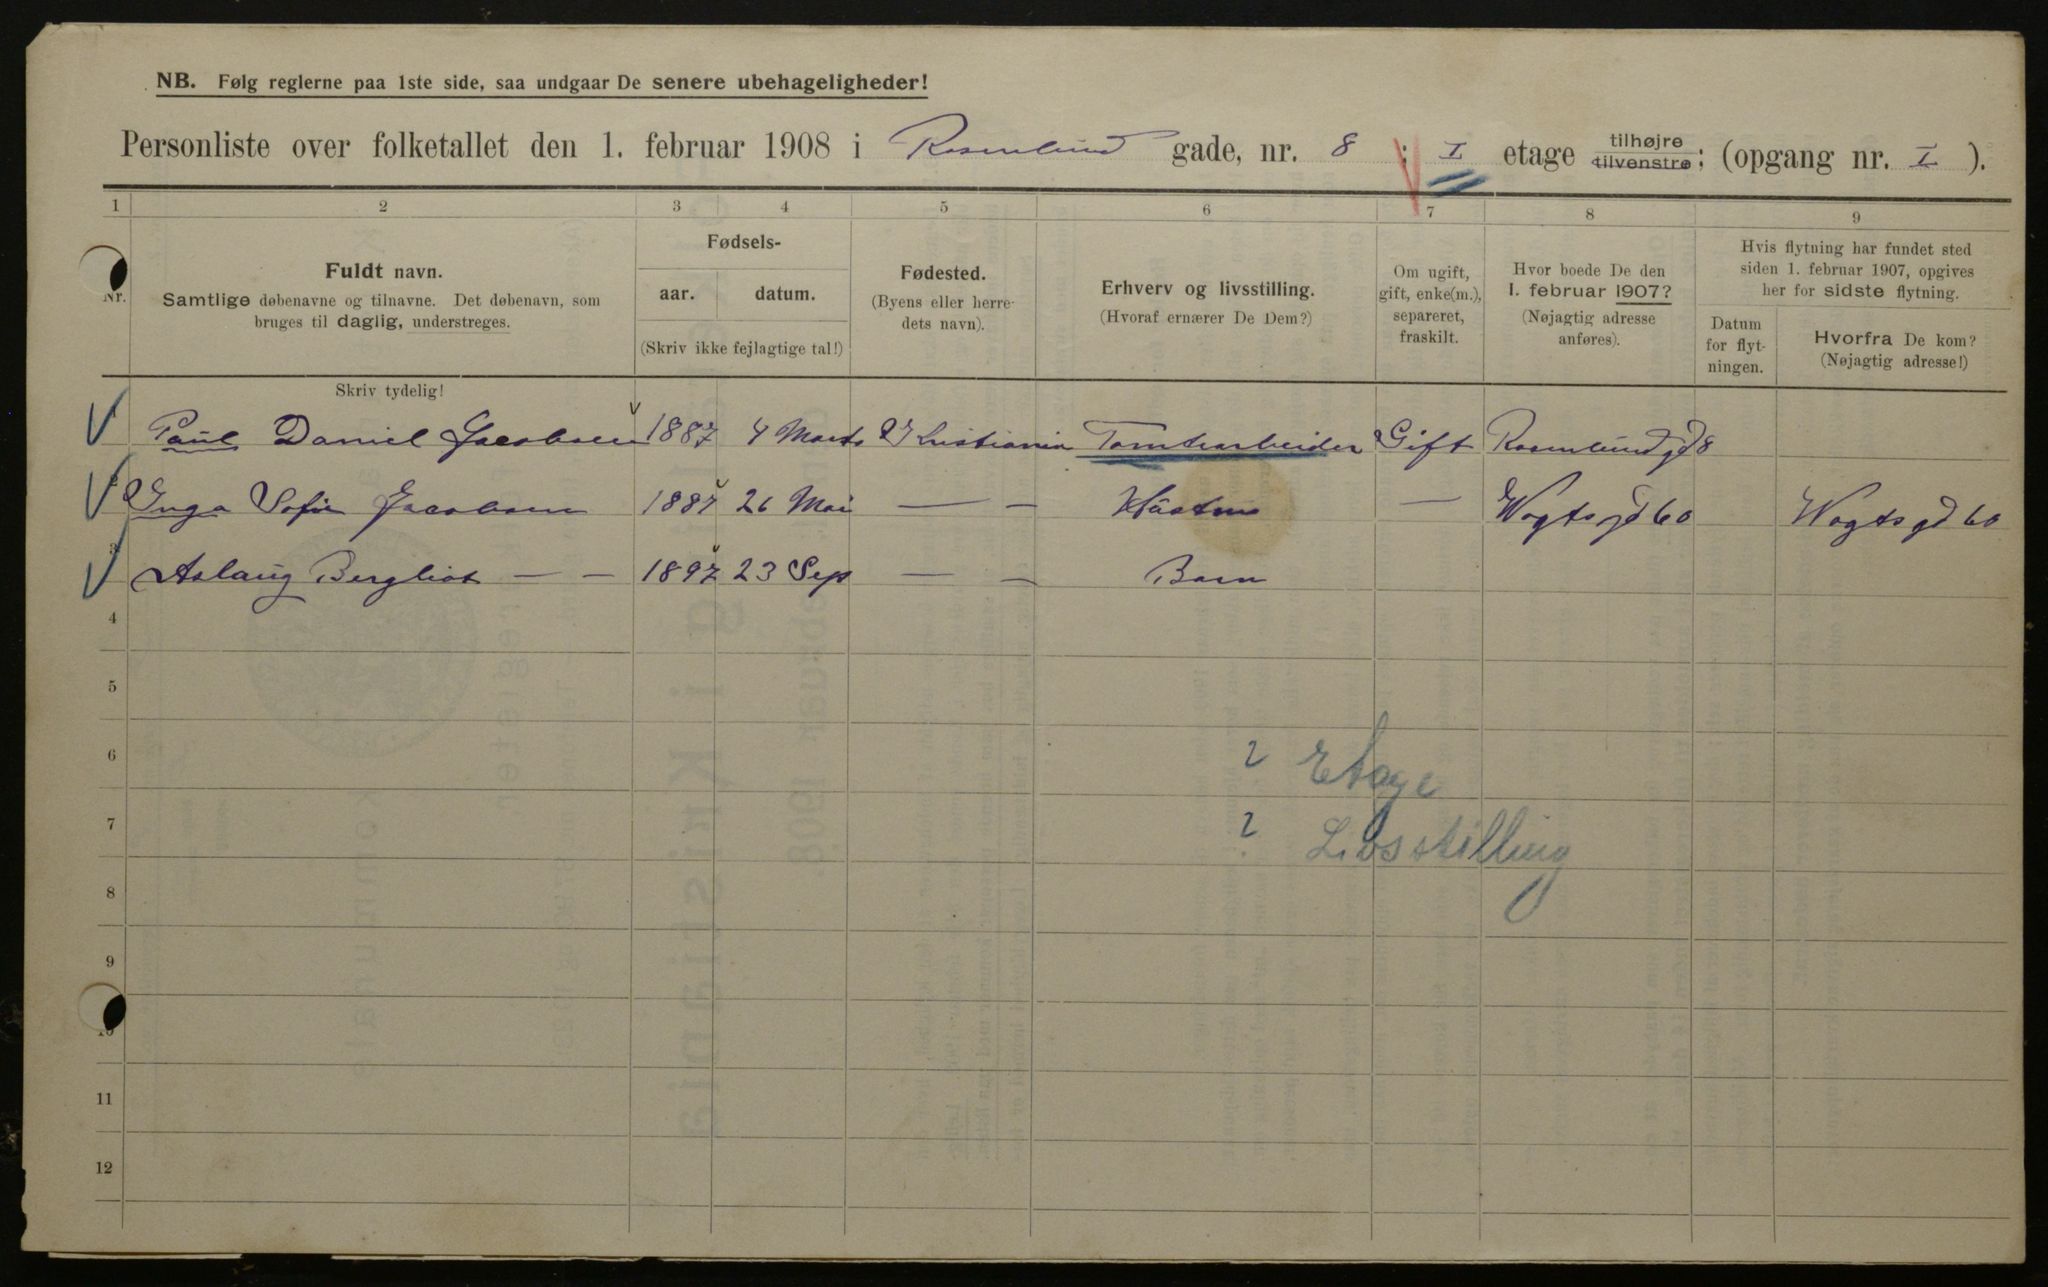 NB. Følg reglerne paa 1ste side, saa undgaar De senere ubehageligheder!
Personliste over folketallet den 1. februar 1908 i Rosenlund gade, nr. 8 ; I etage tilhøjre tilvenstre; (opgang nr. I ).
1 2 3 4 5 6 7 8 9
Nr.
Fuldt navn.
Samtlige døbenavne og tilnavne. Det døbenavn, som
bruges til daglig, understreges.
Fødsels-
aar. datum.
(Skriv ikke fejlagtige tal!)
Fødested.
(Byens eller herre-
dets navn).
Erhverv og livsstilling.
(Hvoraf ernærer De Dem?)
Om ugift,
gift, enke(m.),
separeret,
fraskilt.
Hvor boede De den
1. februar 1907?
(Nøjagtig adresse
anføres).
Hvis flytning har fundet sted
siden 1. februar 1907, opgives
her for sidste flytning.
Datum
for flyt-
ningen.
Hvorfra De kom?
(Nøjagtig adresse!)
Skriv tydelig!
1 Paul Daniel Jacobsen 1887 4 Marts Kristiania Tomtearbeider Gift Rosenlundgd 8
2 Inga Sofie Jacobsen 1887 26 Mai — — Hustru — Wogtsgd 60 Wogtsgd 60
3 Aslaug Bergliot — — 1897 23 Sep — — Barn
4
5
6 2 Etage
7 2 Livsstilling
8
9
10
11
12